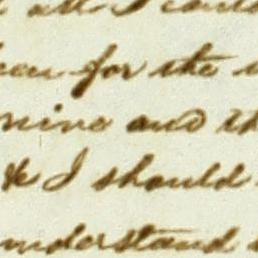 all I could
for the
mine and th
& I should
understand